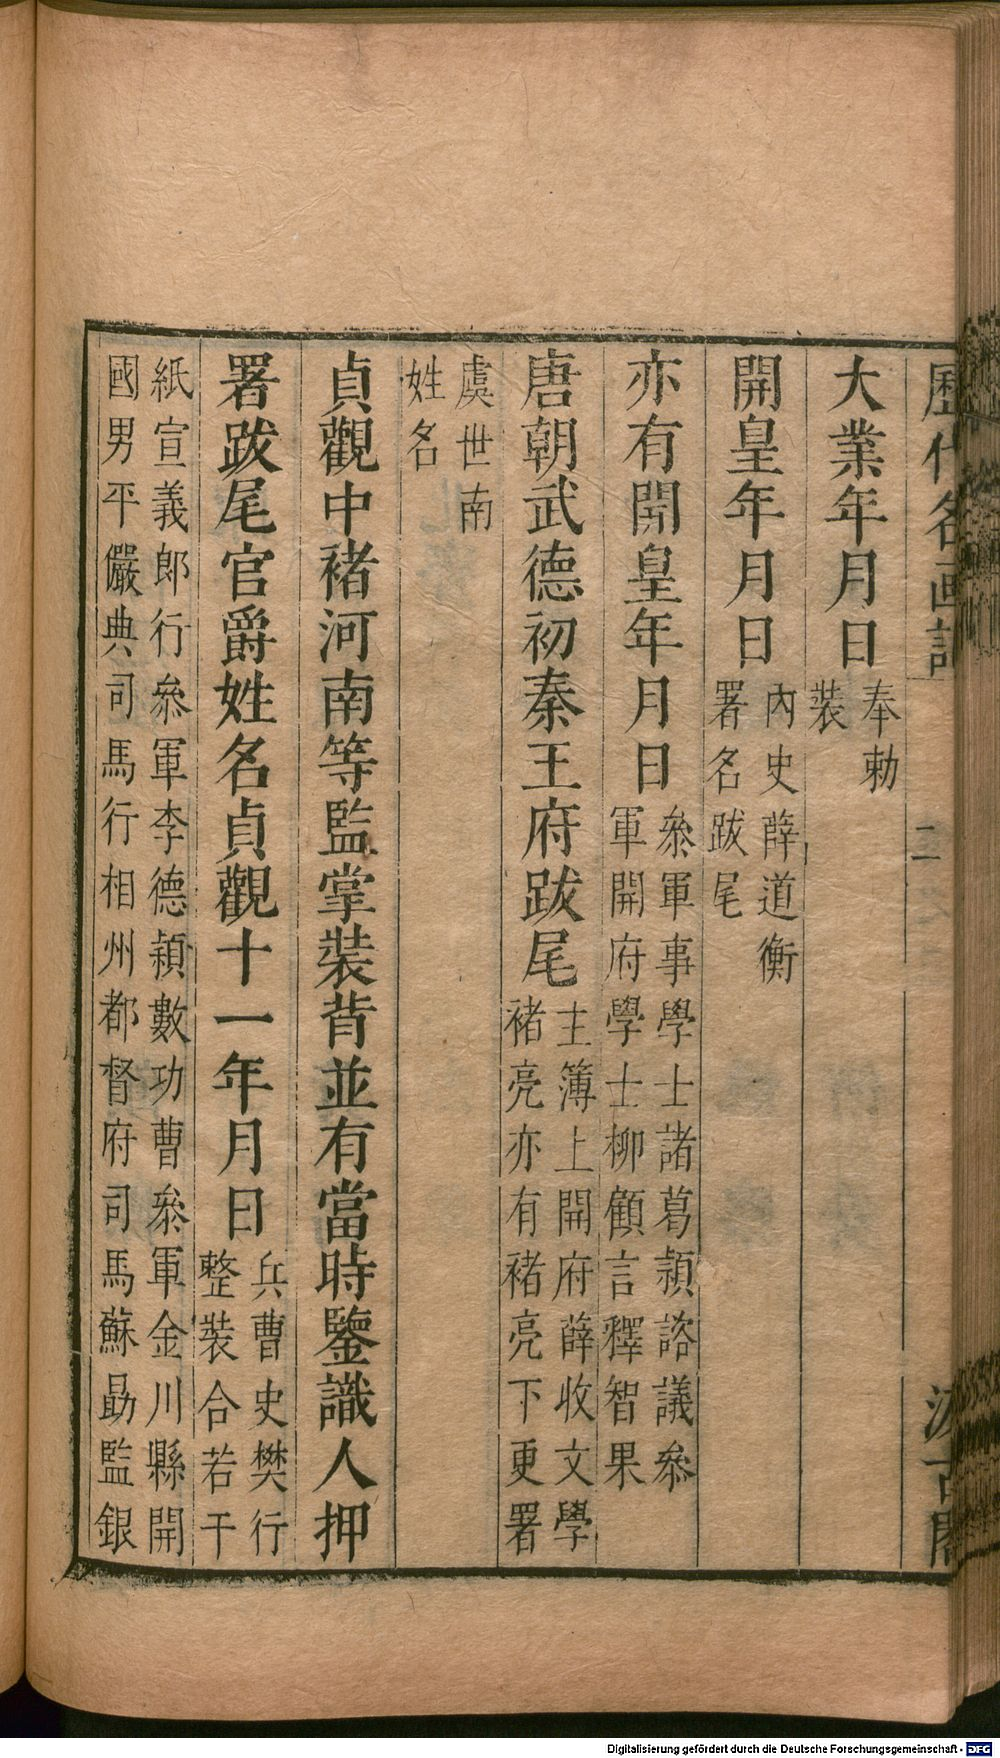 歷代名画記
二
汲古閣
大業年月日奉勅
裝
開皇年月日內史薛道衡
署名跋尾
亦有開皇年月日叅軍事學士諸葛頴諮議叅
軍開府學士柳顧言釋智果
唐朝武德初秦王府跋尾主簿上開府薛收文學
褚亮亦有褚亮下更署
虞世南
姓名
貞觀中褚河南等監掌裝背並有當時鑒識人押
署跋尾官爵姓名貞觀十一年月日兵曹史樊行
整裝合若干
紙宣義郎行叅軍李德頴數功曹叅軍金川縣開
國男平儼典司馬行相州都督府司馬蘇勗監銀
Digitalisierung gefördert durch die Deutsche Forschungsgemeinschaft - DFG